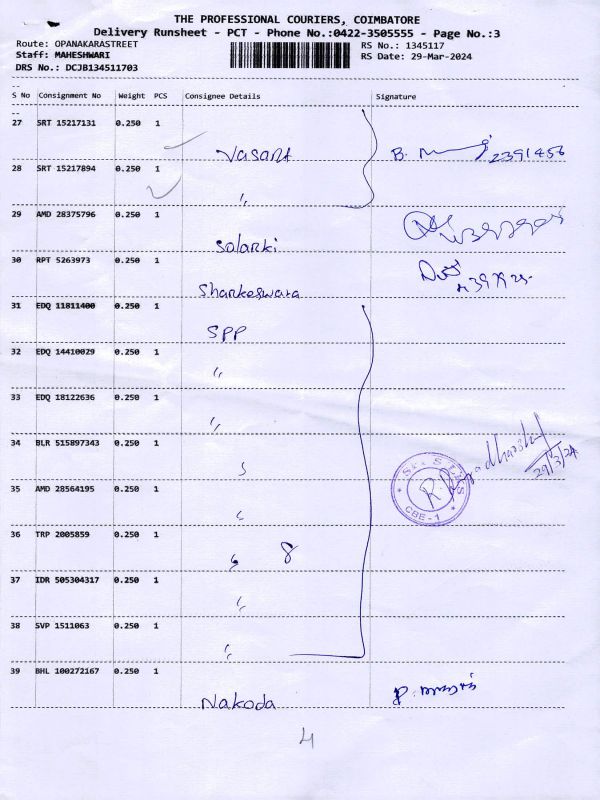 THE PROFESSIONAL COURIERS, COIMBATORE
Delivery Runsheet - PCT - Phone No.:0422-3505555 - Page No.:3
Route: OPANAKARASTREET RS No.: 1345117
Staff: MAHESHWARI RS Date: 29-Mar-2024
DRS No.: DCJB134511703
S No Consignment No Weight PCS Consignee Details Signature
27 SRT 15217131 0.250 1
Vasant B. 2391456
28 SRT 15217894 0.250 1
〃
29 AMD 28375796 0.250 1
Solanki
30 RPT 5263973 0.250 1
Shankeswara
31 EDQ 11811400 0.250 1
SPP
32 EDQ 14410029 0.250 1
〃
33 EDQ 18122636 0.250 1
〃
34 BLR 515897343 0.250 1
〃
29/3/24
35 AMD 28564195 0.250 1
CBE-1
〃
36 TRP 2005859 0.250 1
〃 8
37 IDR 505304317 0.250 1
〃
38 SVP 1511063 0.250 1
〃
39 BHL 100272167 0.250 1
Nakoda
4